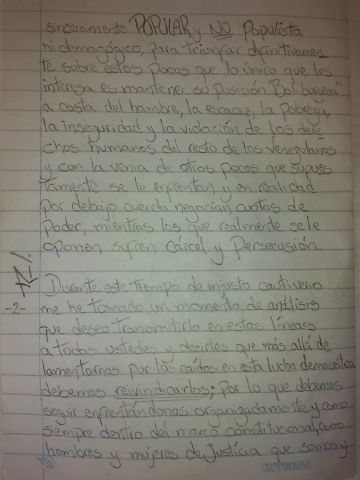 sinceramente POPULAR y NO Populista
ni demagógico, para triunfar definitivamen
te sobre estos pocos que lo único que les
interesa es mantener su posición "Boliburguesa"
a costa del hambre, la escasez, la pobreza,
la inseguridad y la violación de los dere
chos humanos del resto de los venezolanos
y con la venia de otros pocos que supues
tamente se le enfrentan y en realidad
por debajo cuerda negocian cuotas de
Poder, mientras los que realmente se le
oponen sufren Cárcel y Persecusión.
Durante este tiempo de injusto cautiverio
-2- me he tomado un momento de análisis
que deseo transmitirla en estas líneas
a todos ustedes y decirles que más allá de
lamentarnos por los caídos en esta lucha democrática
debemos reivindicarlos; por lo que debemos
seguir enfrentándonos organizadamente y como
siempre dentro del marco constitucional, como
hombres y mujeres de Justicia que somos y